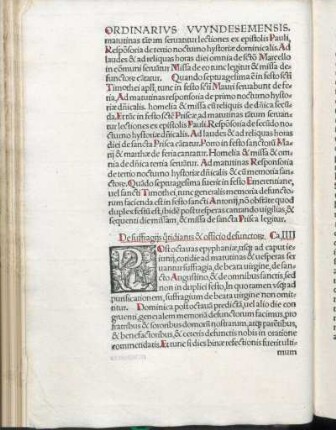 ORDINARIVS VVYNDESEMENSIS.
matutinas tm̄ seruantur lectiones ex epistolis Pauli,
Respōsoria de tertio nocturno hystoriæ dominicalis. Ad
laudes & ad reliquas horas diei omnia de sctō Marcello
in cōmuni seruātur Missa de eo nunc legitur & missa de-
functorum cātatur. Quando septuagesima ē in festo sctī
Timothei apsl̄i, nunc in festo sctī Mauri seruabunt de fe-
ria, Ad matutinas responsoria de primo nocturno hystor-
iæ dn̄icalis. homelia & missa cū reliquis de dn̄ica secū-
da. Et nunc in festo sctē Priscæ, ad matutinas tātum seruan-
tur lectiones ex epistolis Pauli. Responsoria de secūdo no-
cturno hystoriæ dn̄icalis. Ad laudes & ad reliquas horas
diei de sancta Prisca cātatur. Porro in festo sanctorū Ma-
rij & marthæ de feria cantatur. Homelia & missa & om-
nia de dn̄ica tertia seruātur. Ad matutinas Responsoria
de tertio nocturno hystoriæ dn̄icalis & cū memoria san-
ctorum. Quādo septuagesima fuerit in festo Emerentianæ,
uel sancti Timothei, nunc generalis memoria defuncto-
rum facienda est in festo sancti Antonij, nō obstāte quod
duplex festū est, ibidē post uesperas cantando uigilias, &
sequenti die missam, & missa de sancta Prisca legitur.
De suffragijs q̄tidianis & officio defunctorum. Ca. IIII
POst octauas epyphaniæ, usque ad caput ie-
iunij, cotidie ad matutinas & uesperas ser-
uantur suffragia, de beata uirgine, de san-
cto Augustino, & de omnibus sanctis, sed
non in duplici festo, In quo tamen usque ad
purificationem, suffragium de beata uirgine non omitti-
tur. Dominica post octauā predictā, uel alio die con-
gruenti, generalem memoriā defunctorum facimus, pro
fratribus & sororibus domorū nostrarum, atque parētibus,
& benefactoribus, & ceteris defunctis nobis in oratione
commendatis. Et nunc si dies binæ refectionis fuerit ulti-
mum